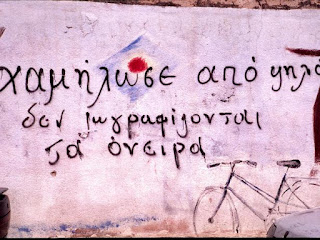 χαμήλωσε από ψηλά
δεν ζωγραφίζονται
τα όνειρα